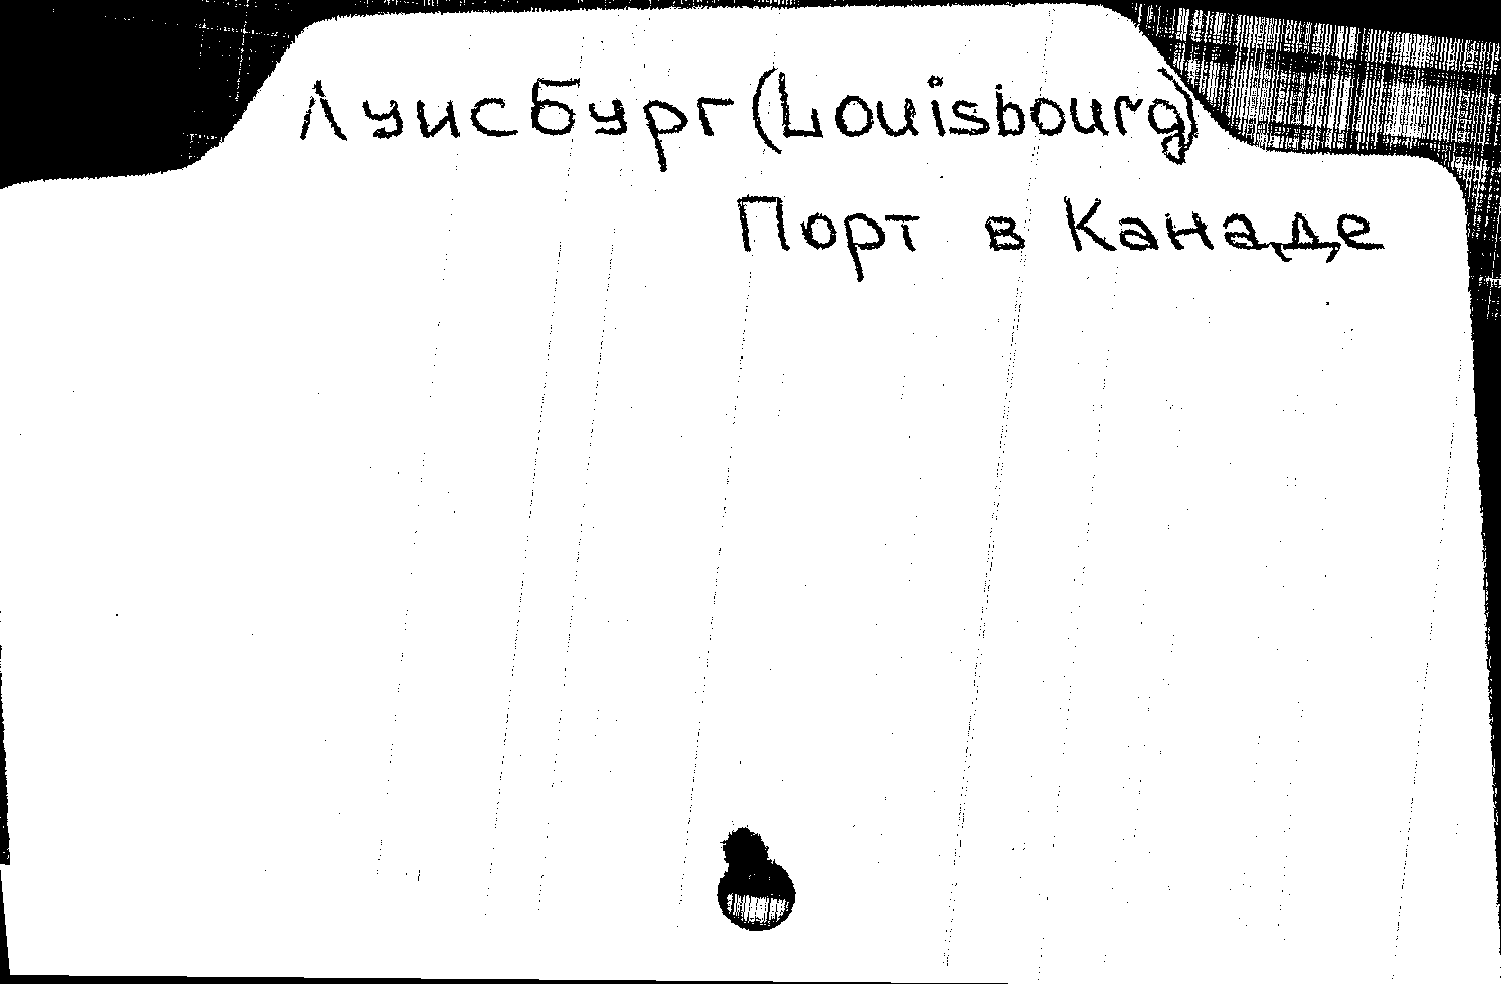 Луисбург (Louisbourg)
Порт в Канаде